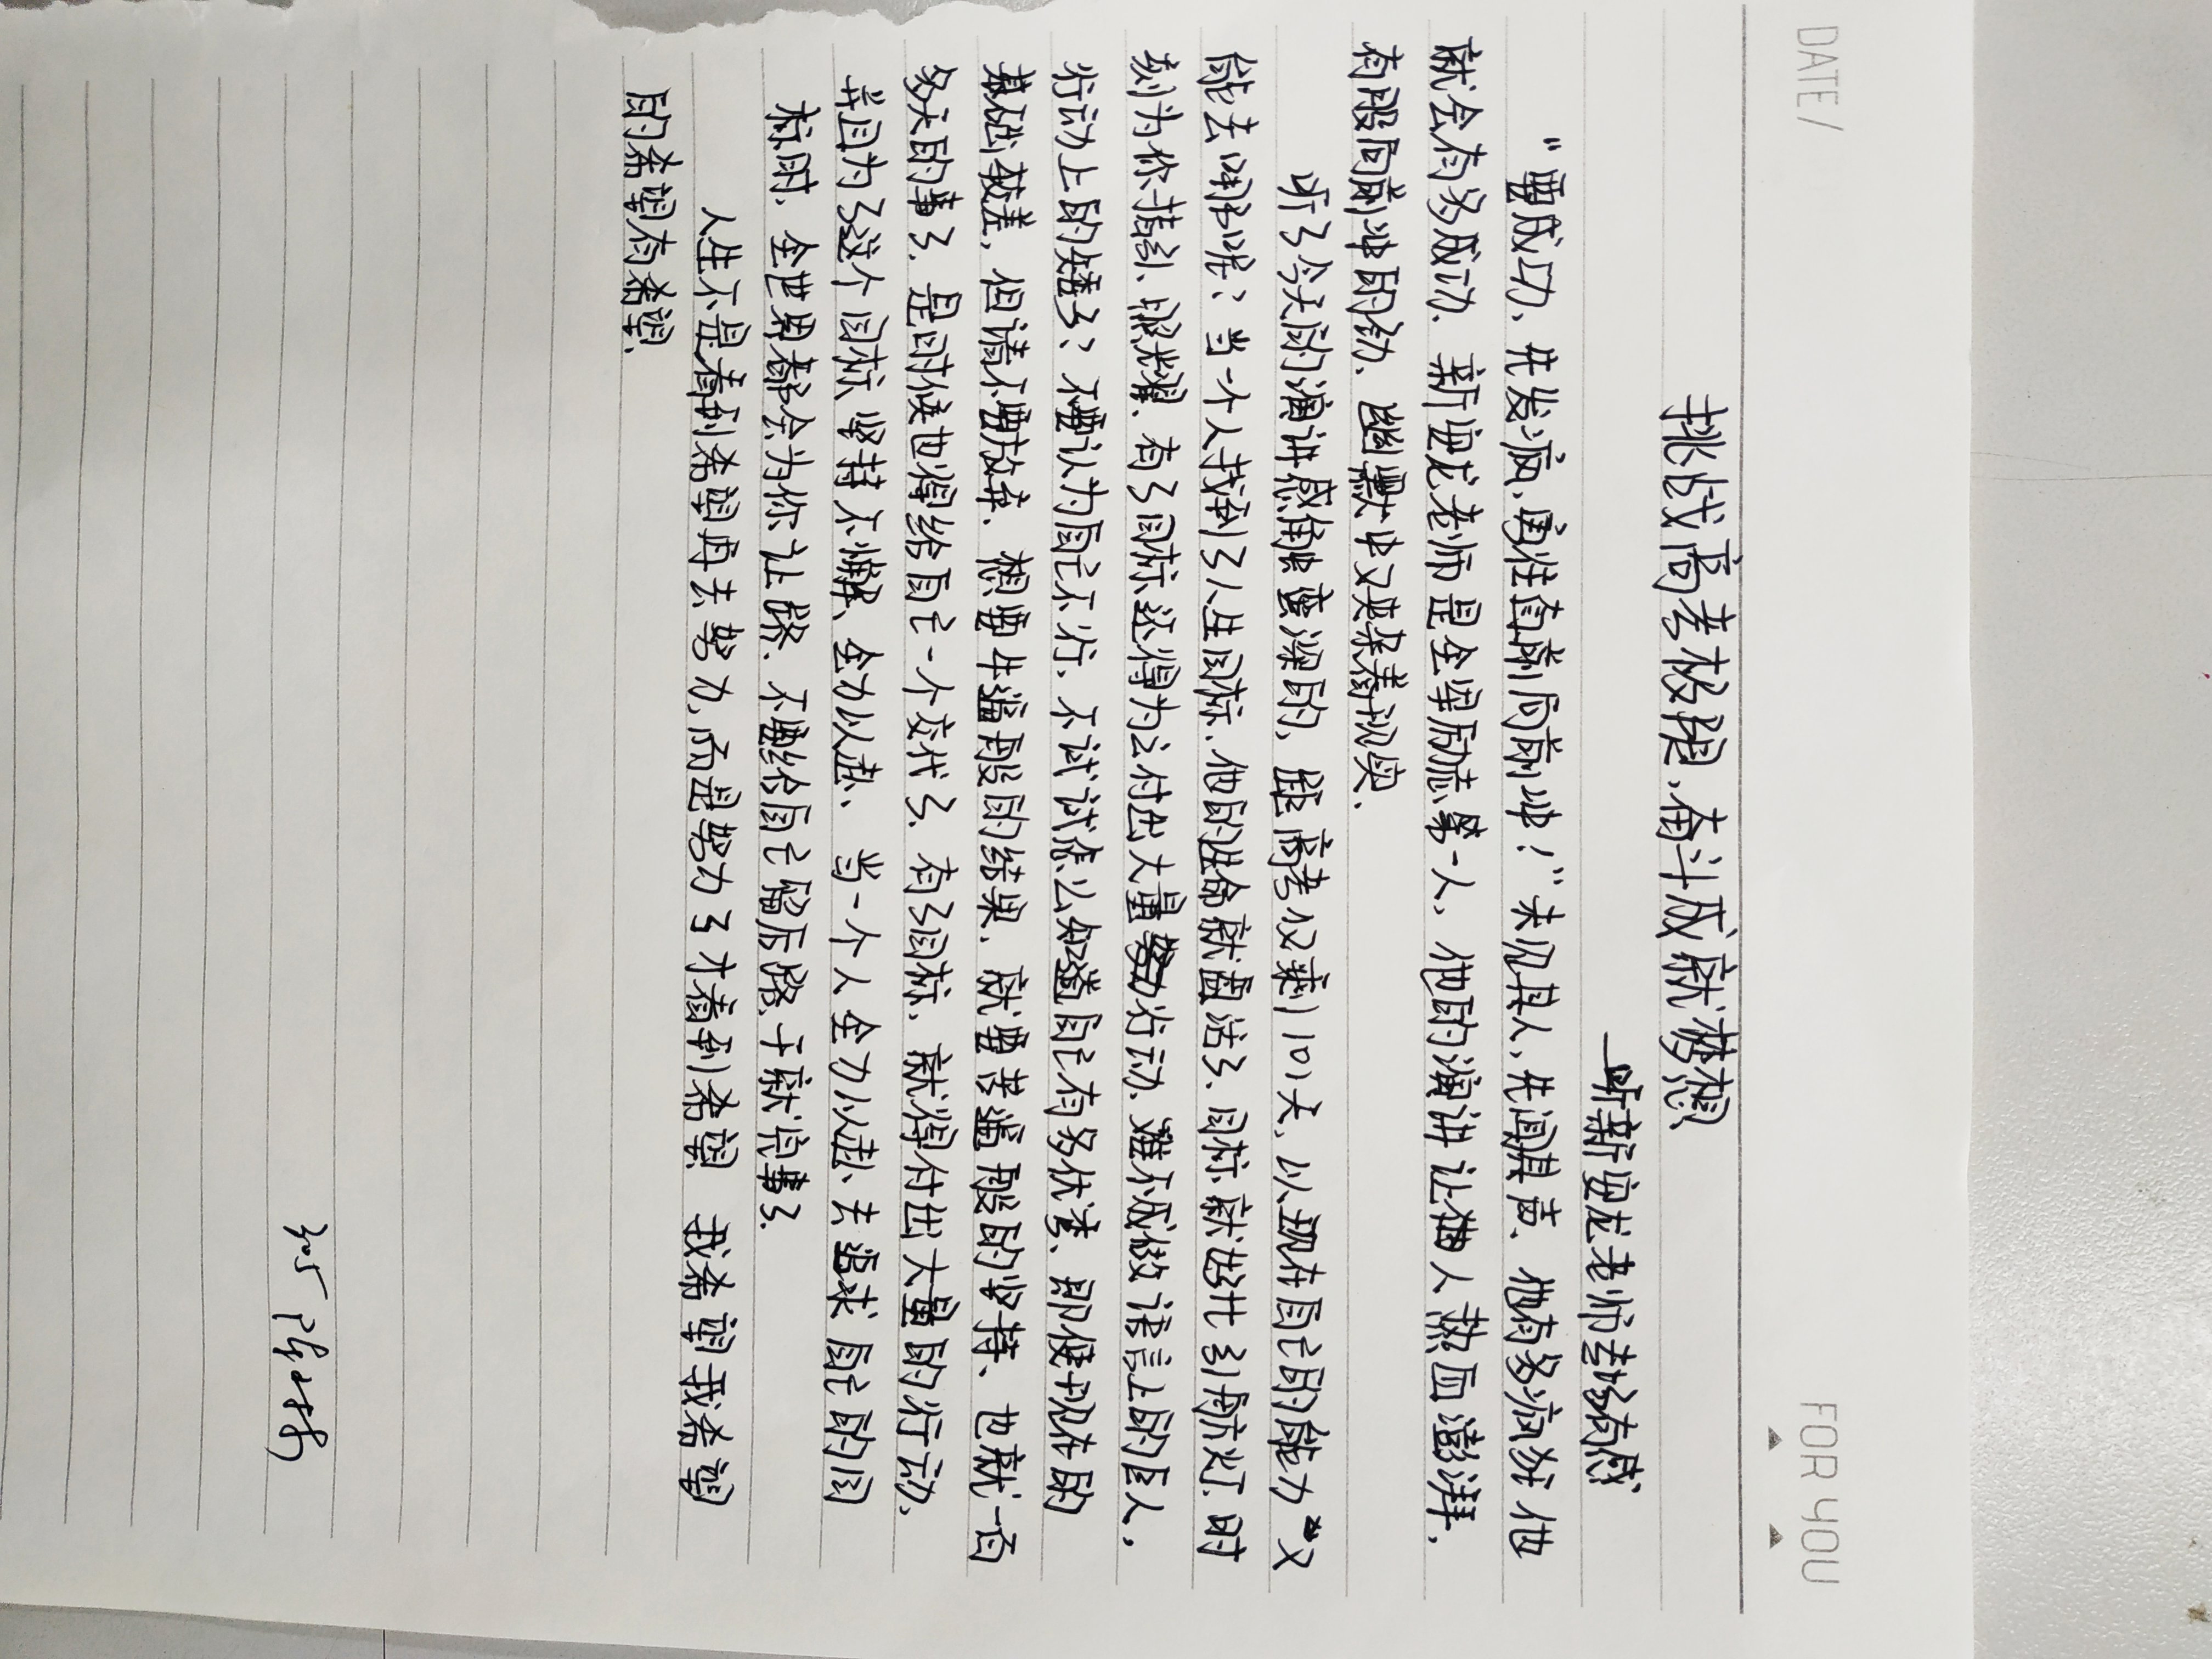 DATE / FOR YOU
挑战高考极限，奋斗成就梦想
—听新安龙老师去场有感
“要成功、先发疯，勇往直前向前冲！”未见其人，先闻其声、他有多疯狂他
就会有多成功、新安龙老师是全军励志第一人，他的演讲让人热血澎湃.
有股向前冲的劲、幽默中又夹杂着现实.
听了今天的演讲感触蛮深的，距高考仅剩101天，以现在自己的能力 又
能去哪呢？当一个人找到了人生目标、他的生命就盘活了、目标就好比引航灯、时
刻为你指引、照耀、有了目标还得为之付出大量努力行动、难不成做语言上的巨人，
行动上的矮子？不要认为自己不行，不试试怎么知道自己有多优秀、即使现在的
基础较差，但请不要放弃、想要牛逼般的结果、就要苦逼般的坚持、也就一百
多天的事了、是时候也得给自己一个交代了、有了目标、就得付出大量的行动，
并且为了这个目标坚持不懈、全力以赴、当一个人全力以赴、去追求自己的目
标时、全世界都会为你让路、不要给自己留后路、干就完事了.
人生不是看到希望再去努力，而是努力了才看到希望 我希望我希望
的希望有希望.